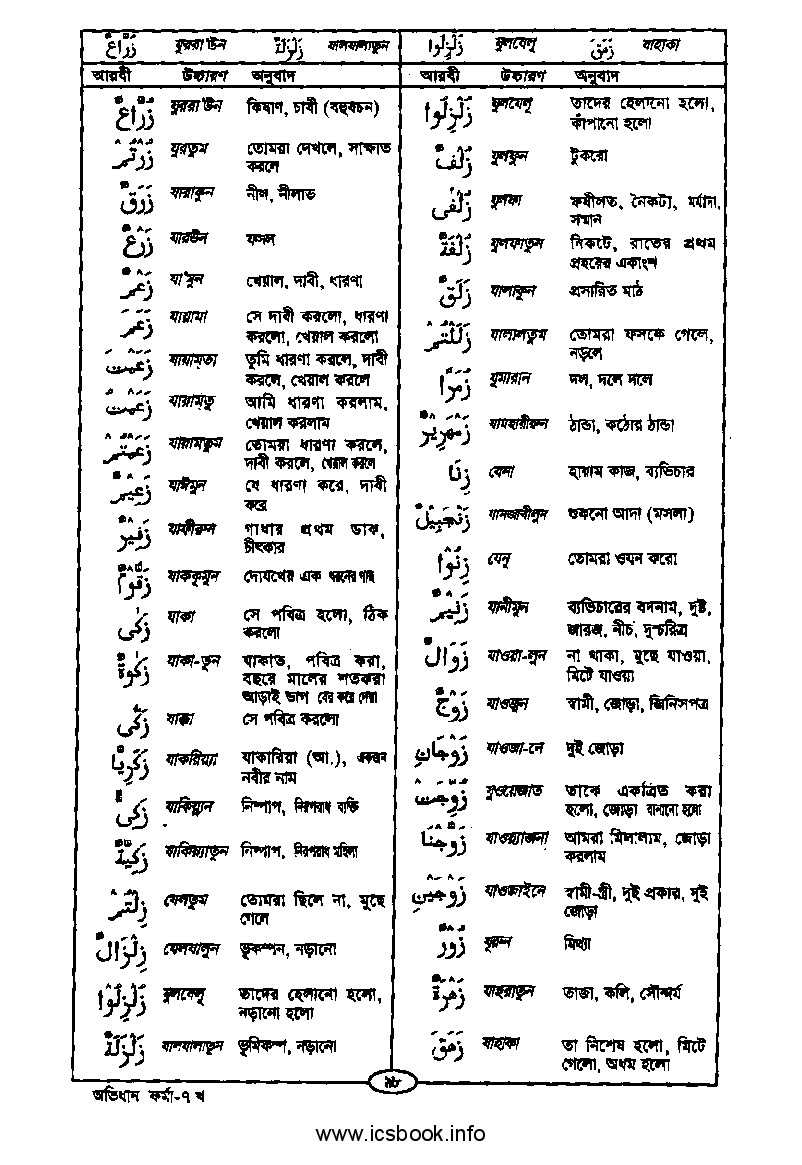 زُرَّاعٌ যুররা'উন زَلْزَلَةٌ যালযালাতুন
আরবী উচ্চারণ অনুবাদ
زُرَّاعٌ যুররা'উন কিষাণ, চাষী (বহুবচন)
زُرْتُمْ যুরতুম তোমরা দেখলে, সাক্ষাত
করলে
زُرْقٌ যারাকুন নীল, নীলাভ
زَرْعٌ যারউন ফসল
زَعْمٌ যা'মুন খেয়াল, দাবী, ধারণা
زَعَمَ যায়ামা সে দাবী করলো, ধারণা
করলো, খেয়াল করলো
زَعَمْتَ যায়ামতা তুমি ধারণা করলে, দাবী
করলে, খেয়াল করলে
زَعَمْتُ যায়ামতু আমি ধারণা করলাম,
খেয়াল করলাম
زَعَمْتُمْ যায়ামতুম তোমরা ধারণা করলে,
দাবী করলে, খেয়াল করলে
زَعِيمٌ যাঈমুন যে ধারণা করে, দাবী
করে
زَفِيرٌ যাফীরুন গাধার প্রথম ডাক,
চীৎকার
زَقُّومٌ যাককূমুন দোযখের এক ধরনের গাছ
زَكٰى যাকা সে পবিত্র হলো, ঠিক
করলো
زَكٰوةٌ যাকা-তুন যাকাত, পবিত্র করা,
বছরে মালের শতকরা
আড়াই ভাগ বের করে দেয়া
زَكّٰى যাক্কা সে পবিত্র করলো
زَكَرِيَّا যাকারিয়্যা যাকারিয়া (আ.), একজন
নবীর নাম
زَكِيٌّ যাকিয়্যান নিষ্পাপ, নিরপরাধ ব্যক্তি
زَكِيَّةٌ যাকিয়্যাতুন নিষ্পাপ, নিরপরাধ মহিলা
زِلْتُمْ যেলতুম তোমরা ছিলে না, মুছে
গেলে
زِلْزَالٌ যেলযালুন ভূকম্পন, নড়ানো
زُلْزِلُوا যুলযেলূ তাদের হেলানো হলো,
নড়ানো হলো
زَلْزَلَةٌ যালযালাতুন ভূমিকম্প, নড়ানো
زُلْزِلُوا যুলযেলূ زَهَقَ যাহাকা
আরবী উচ্চারণ অনুবাদ
زُلْزِلُوا যুলযেলূ তাদের হেলানো হলো,
কাঁপানো হলো
زُلَفٌ যুলফুন টুকরো
زُلْفٰى যুলফা ফযীলত, নৈকট্য, মর্যাদা,
সম্মান
زُلْفَةٌ যুলফাতুন নিকটে, রাতের প্রথম
প্রহরের একাংশ
زَلَقٌ যালাকুন প্রসারিত মাঠ
زَلَلْتُمْ যালালতুম তোমরা ফসকে গেলে,
নড়লে
زُمَرًا যুমারান দল, দলে দলে
زَمْهَرِيرٌ যামহারীরুন ঠান্ডা, কঠোর ঠান্ডা
زِنَا যেনা হারাম কাজ, ব্যভিচার
زَنْجَبِيلٌ যানজাবীলুন শুকনো আদা (মসলা)
زِنُوا যেনূ তোমরা ওযন করো
زَنِيمٌ যানীমুন ব্যভিচারের বদনাম, দুষ্ট,
জারজ, নীচ, দুশ্চরিত্র
زَوَالٌ যাওয়া-লুন না থাকা, মুছে যাওয়া,
মিটে যাওয়া
زَوْجٌ যাওজুন স্বামী, জোড়া, জিনিসপত্র
زَوْجَانِ যাওজা-নে দুই জোড়া
زُوِّجَتْ যুওয়েজাত তাকে একত্রিত করা
হলো, জোড়া বাধানো হলো
زَوَّجْنَا যাওয়্যাজনা আমরা মিলালাম, জোড়া
করলাম
زَوْجَيْنِ যাওজাইনে স্বামী-স্ত্রী, দুই প্রকার, দুই
জোড়া
زُوْرٌ যূরুন মিথ্যা
زَهْرَةٌ যাহরাতুন তাজা, কলি, সৌন্দর্য
زَهَقَ যাহাকা তা নিশেষ হলো, মিটে
গেলো, অধম হলো
৯৮
অভিধান ফর্মা-৭ খ
www.icsbook.info